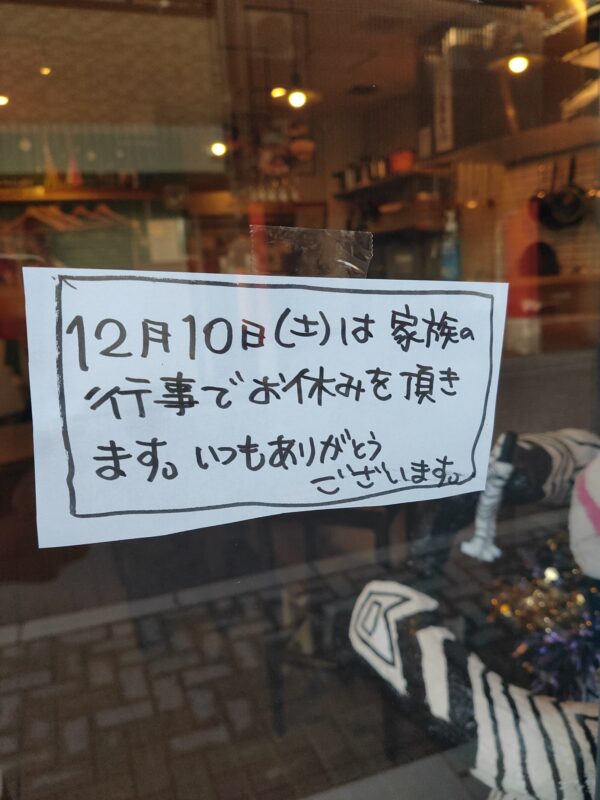 12月10日(土)は 家族の
行事でお休みを頂き
ます。いつもありがとう
ございます。